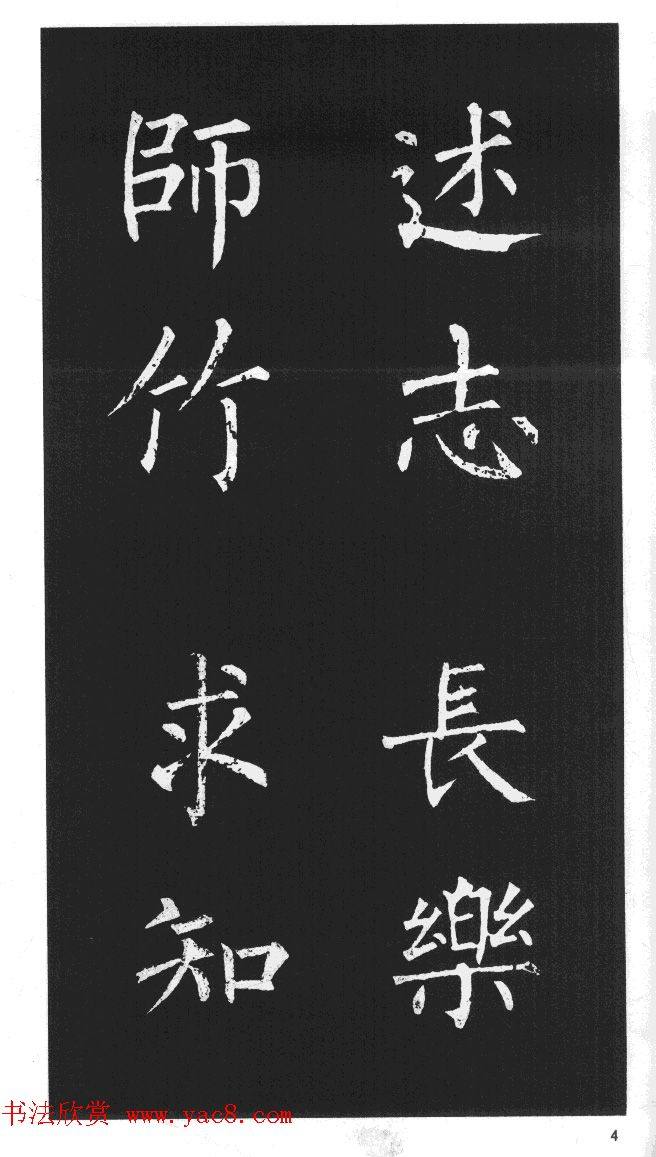 述志長樂
師竹求知
书法欣赏 www.yac8.com
4